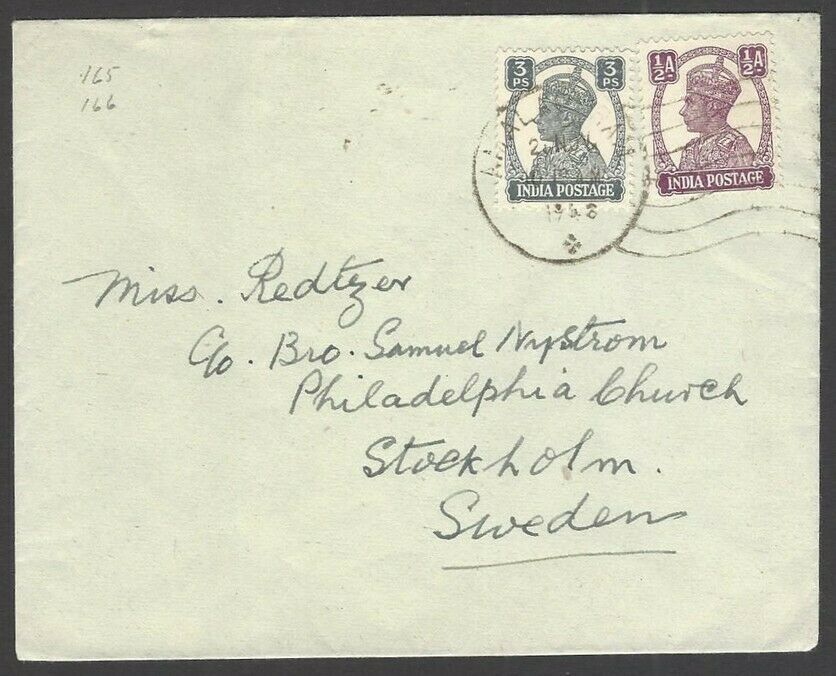 165
166
3 PS 3 PS
INDIA POSTAGE
½A ½A
INDIA POSTAGE
1948
Miss. Redtzer
C/o. Bro. Samuel Nystrom
Philadelphia Church
Stockholm.
Sweden